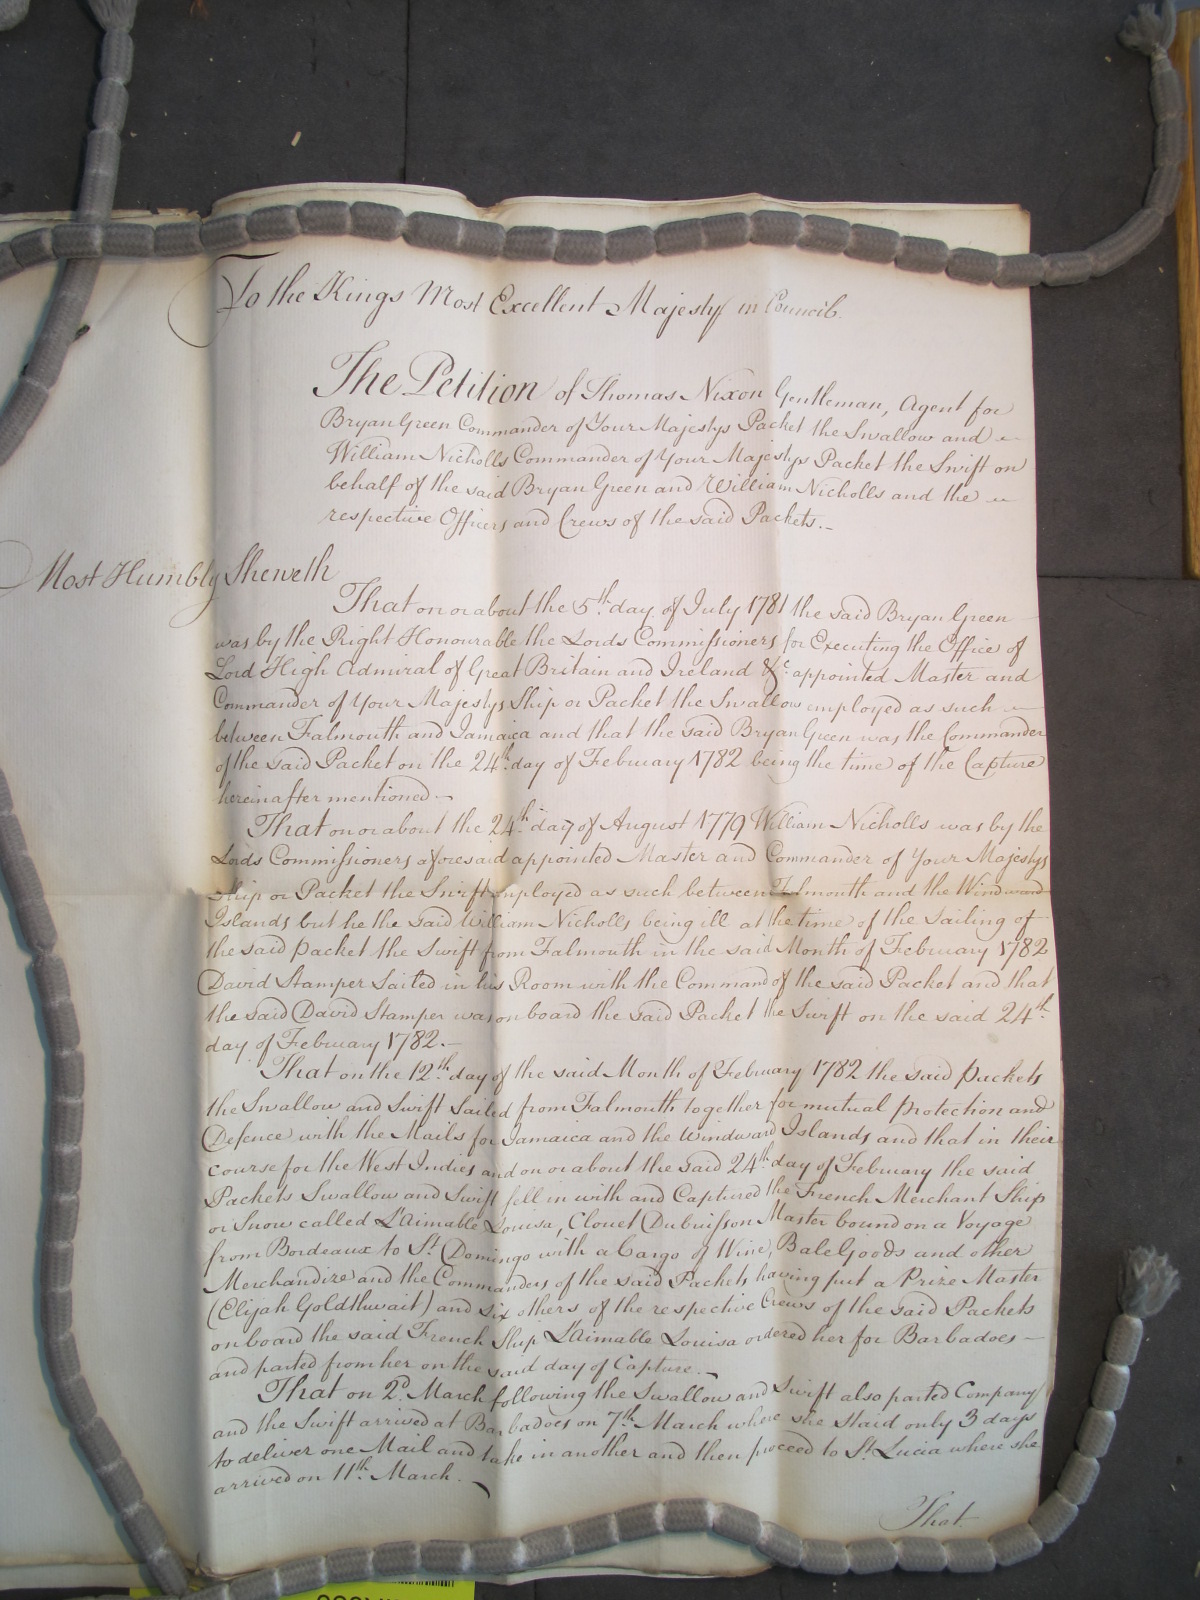 To the Kings Most Excellent Majesty in Council.
The Petition of Thomas Nixon Gentleman, Agent for
Bryan Green Commander of Your Majestys Packet the Swallow and
William Nicholls Commander of Your Majestys Packet the Swift on
behalf of the said Bryan Green and William Nicholls and the
respective Officers and Crews of the said Packets.
Most Humbly Sheweth
That on or about the 5th day of July 1781 the said Bryan Green
was by the Right Honourable the Lords Commissioners for Executing the Office of
Lord High Admiral of Great Britain and Ireland &c. appointed Master and
Commander of Your Majestys Ship or Packet the Swallow employed as such
between Falmouth and Jamaica and that the said Bryan Green was the Commander
of the said Packet on the 24th day of February 1782 being the time of the Capture
hereinafter mentioned
That on or about the 24th day of August 1779 William Nicholls was by the
Lords Commissioners aforesaid appointed Master and Commander of Your Majestys
Ship or Packet the Swift employed as such between Falmouth and the Windward
Islands but he the said William Nicholls being ill at the time of the Sailing of
the said Packet the Swift from Falmouth in the said Month of February 1782
David Stamper Sailed in his Room with the Command of the said Packet and that
the said David Stamper was on board the said Packet the Swift on the said 24th
day of February 1782.
That on the 12th day of the said Month of February 1782 the said Packets
the Swallow and Swift Sailed from Falmouth together for mutual Protection and
Defence with the Mails for Jamaica and the Windward Islands and that in their
course for the West Indies and on or about the said 24th day of February the said
Packets Swallow and Swift fell in with and Captured the French Merchant Ship
or Snow called L'Aimable Louisa, Clouet Dubuisson Master bound on a Voyage
from Bordeaux to St. Domingo with a Cargo of Wine, Bale Goods and other
Merchandize and the Commanders of the said Packets having put a Prize Master
(Elijah Goldthwait) and six others of the respective Crews of the said Packets
on board the said French Ship L'Aimable Louisa ordered her for Barbadoes
and parted from her on the said day of Capture.
That on 2d. March following the Swallow and Swift also parted Company
and the Swift arrived at Barbadoes on 7th March where she staid only 3 days
to deliver one Mail and take in another and then proceed to St. Lucia where she
arrived on 11th March.
That